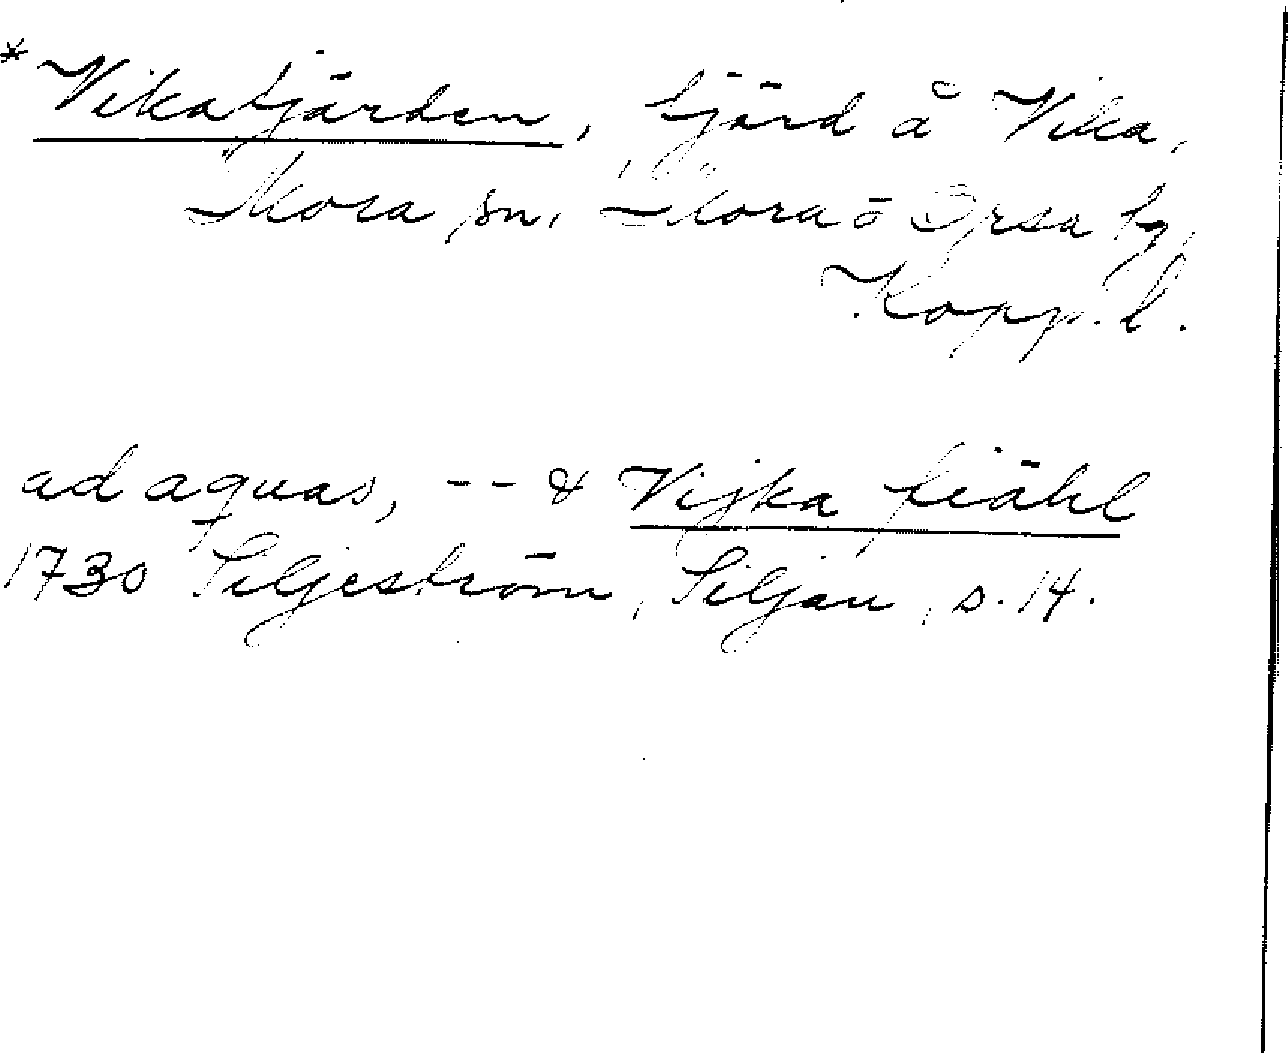 *Vikafjärden, fjärd å Vika,
Mora sn. Mora o Orsa tg,
Kopp. l.
ad aquas, -- & Vijka fiähl
1730 Siljeström, Siljan, s. 14.